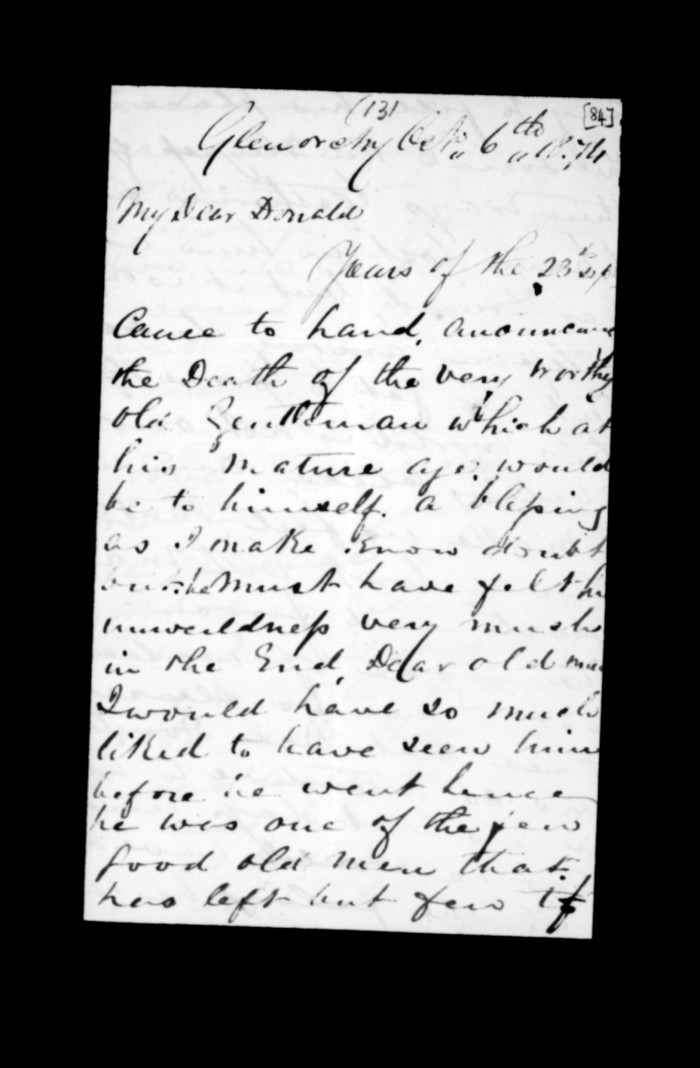 (13)
[84]
Glenorchy Oct. 6th 1874
My Dear Donald
Yours of the 23d Sep
Came to hand, anouncing
the Death of the very worthy
old Gentleman which at
his mature age would
be to himself. a blessing
as I make know doubt
but he must have felt his
unweildness very much
in the End, Dear old man
I would have so much
liked to have seen him
before he went hence
he was one of the few
good old men that
has left but few